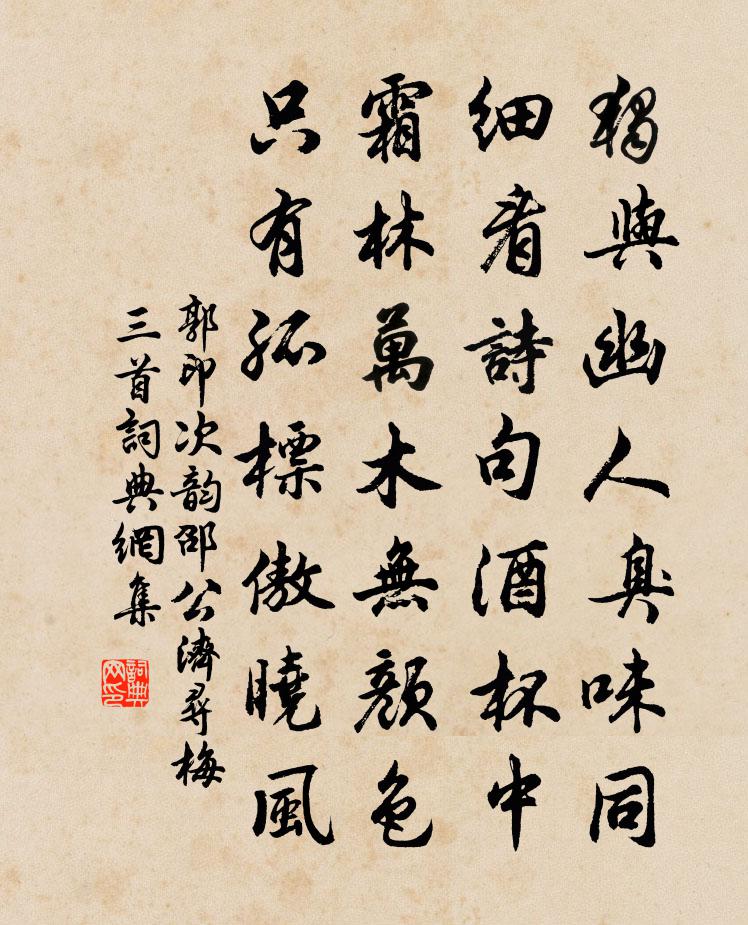 獨與幽人臭味同
細看詩句酒杯中
霜林萬木無顏色
只有孤標傲曉風
郭印次韵邵公濟尋梅
三首詞典網集
詞典網印